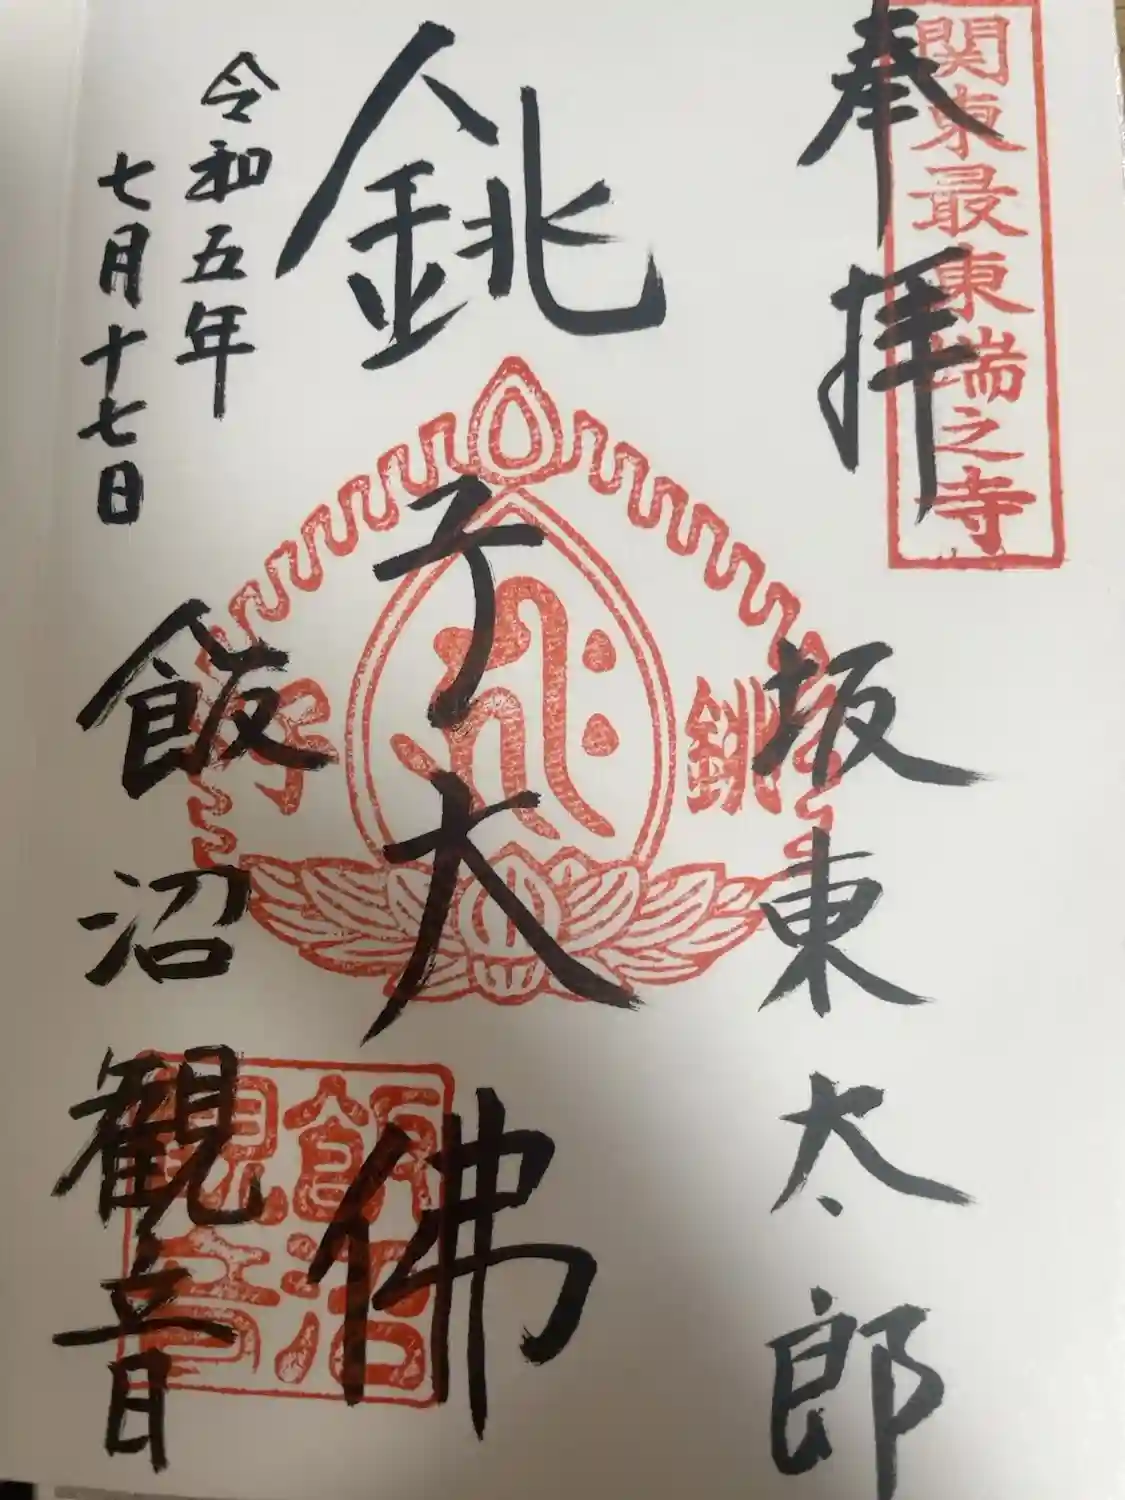 関東最東端之寺
奉拝
坂東太郎
銚子大佛
銚子
令和五年
七月十七日
飯沼観音
飯沼
観音